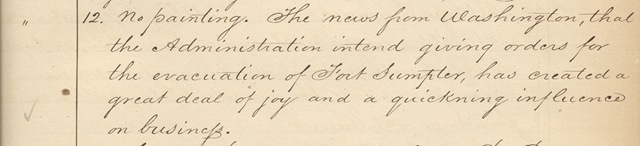 " 12. No painting. The news from Washington, that
the Administration intend giving orders for
the evacuation of Fort Sumpter, has created a
great deal of joy and a quickning influence
on business.